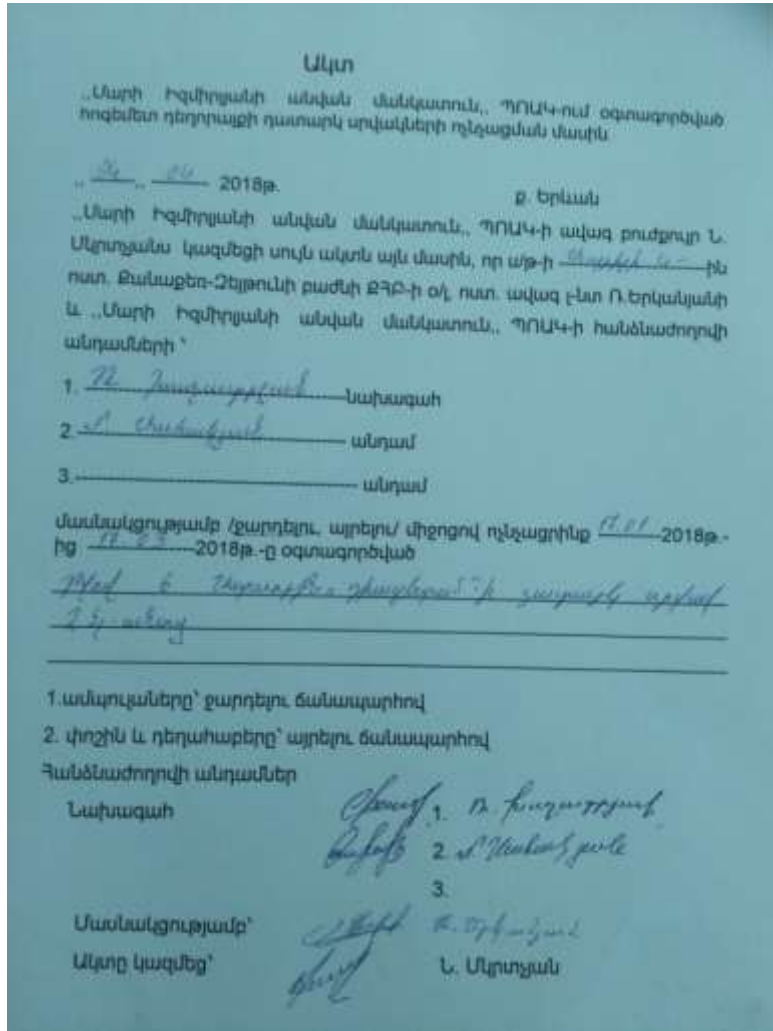 Ակտ
,,Մարի Իզմիրլյանի անվան մանկատուն,, ՊՈԱԿ-ում օգտագործված
հոգեմետ դեղորայքի դատարկ սրվակների ոչնչացման մասին
,, ,, 04 2018թ. ք. Երևան
,,Մարի Իզմիրլյանի անվան մանկատուն,, ՊՈԱԿ-ի ավագ բուժքույր Ն.
Մկրտչյանս կազմեցի սույն ակտն այն մասին, որ ա/թ-ի -ին
ոստ. Քանաքեռ-Զեյթունի բաժնի ՔՀԲ-ի օ/լ ոստ. ավագ լ-նտ Ռ.Երկանյանի
և ,,Մարի Իզմիրլյանի անվան մանկատուն,, ՊՈԱԿ-ի հանձնաժողովի
անդամների ՝
1. Ռ. Խաչատրյան նախագահ
2. անդամ
3.---------- անդամ
մասնակցությամբ /ջարդելու, այրելու/ միջոցով ոչնչացրինք 17.01 2018թ.-
ից 17.03 2018թ.-ը օգտագործված
թվով 6 դատարկ սրվակ
1.ամպուլաները՝ ջարդելու ճանապարհով
2. փոշին և դեղահաբերը՝ այրելու ճանապարհով
Հանձնաժողովի անդամներ
Նախագահ 1. Ռ. Խաչատրյան
2.
3.
Մասնակցությամբ՝ Ռ. Երկանյան
Ակտը կազմեց՝ Ն. Մկրտչյան